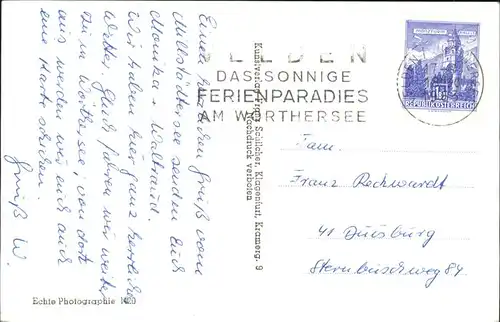 Einen herzlichen Gruß vom
Millstättersee senden Euch
Monika, Waltraud.
Wir haben hier ganz herrliches
Wetter. Gleich fahren wir weiter
bis zum Wörthersee, von dort
aus werden wir euch auch
eine Karte schicken.
Gruß W.
Echte Photographie
Kunstverlag Franz Schilcher, Klagenfurt, Kramerg. 9
Nachdruck verboten
VELDEN
DAS SONNIGE
FERIENPARADIES
AM WÖRTHERSEE
REPUBLIK ÖSTERREICH
Fam.
Franz Reckwardt
41 Duisburg
Sternbuschweg 84